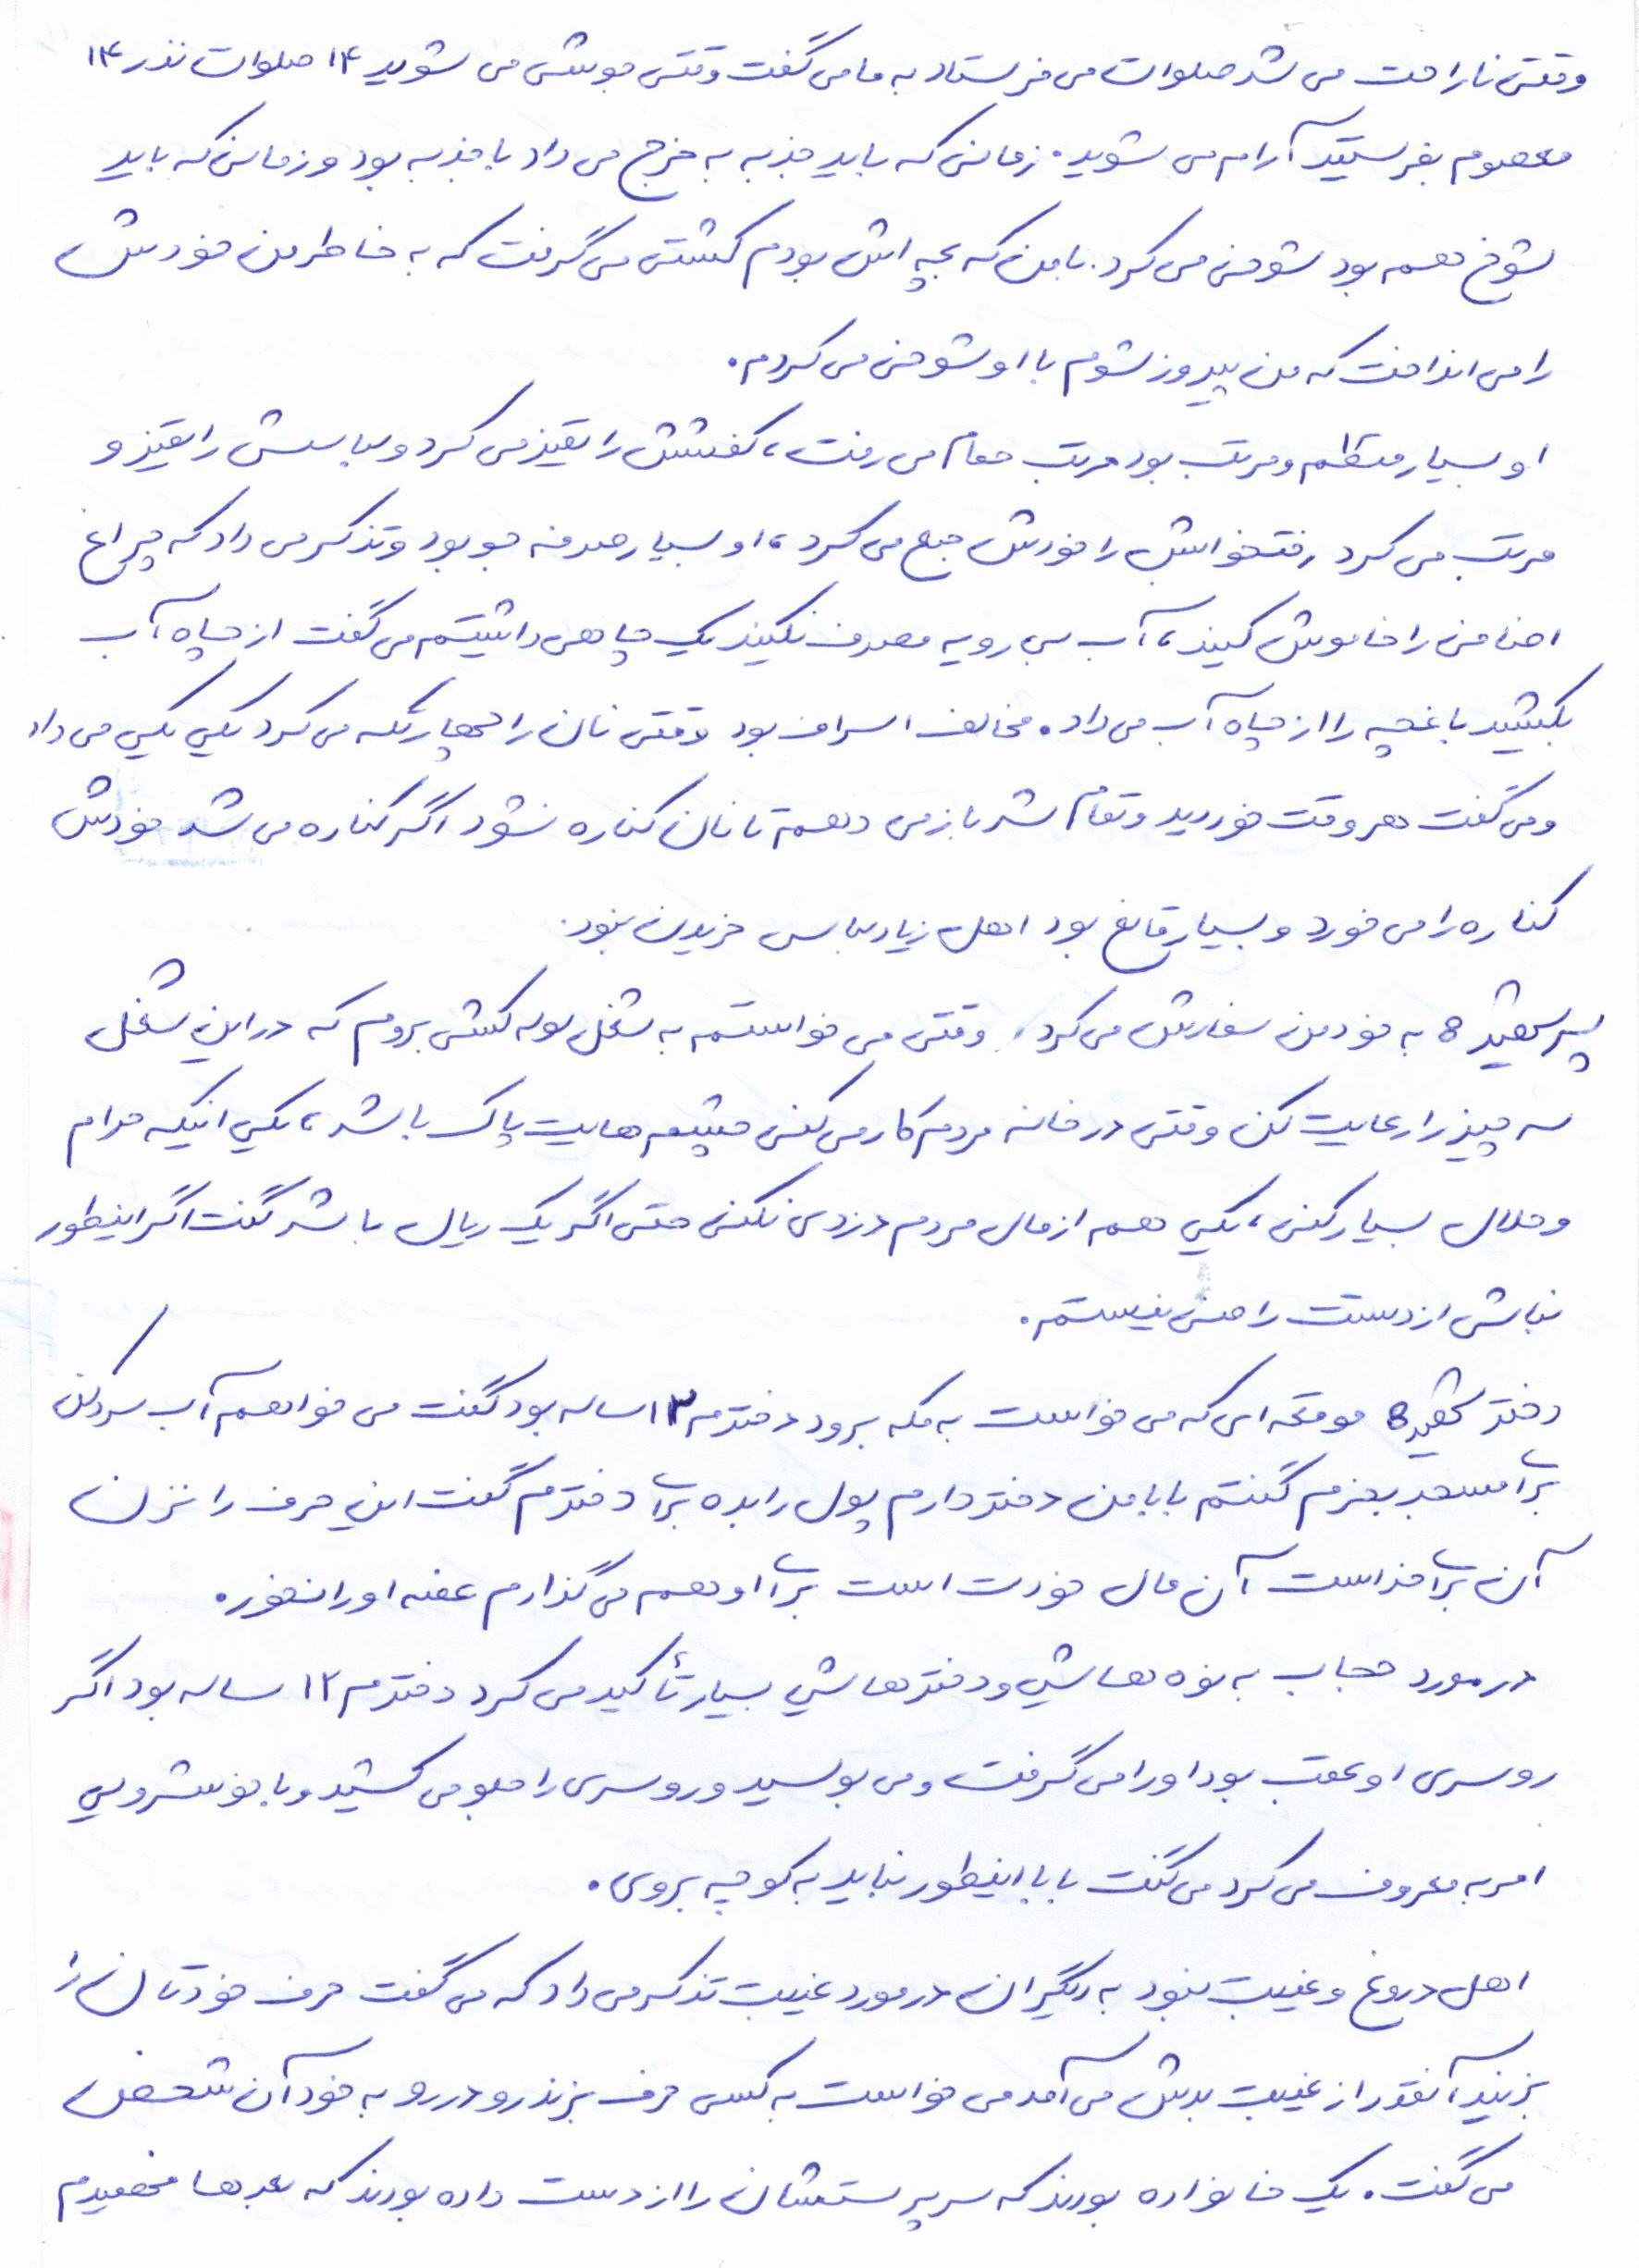 وقتی ناراحت می شد صلوات می فرستاد به ما می گفت وقتی جوشی می شوید ۱۴ صلوات نذر ۱۴
معصوم بفرستید آرام می شوید. زمانی که باید جذبه به خرج می داد با جذبه بود و زمانی که باید
شوخ هم بود شوخی می کرد. با من که بچه اش بودم کشتی می گرفت که به خاطر من خودش
را می انداخت که من پیروز شوم با او شوخی می کردم.
او بسیار منظم و مرتب بود مرتب حمام می رفت، کفشش را تمیز می کرد و لباسش را تمیز و
مرتب می کرد رختخوابش را خودش جمع می کرد، او بسیار صرفه جو بود و تذکر می داد که چراغ
اضافی را خاموش کنید، آب بی رویه مصرف نکنید یک چاهی داشتیم می گفت از چاه آب
بکشید باغچه را از چاه آب می داد. مخالف اسراف بود وقتی نان را چهار تکه می کرد یکی یکی می داد
و می گفت هر وقت خوردید و تمام شد باز می دهم تا نان کناره نشود اگر کناره می شد خودش
کناره را می خورد و بسیار قانع بود اهل زیاد لباس خریدن نبود.
پسر شهید: به خود من سفارش می کرد وقتی می خواستم به شغل لوله کشی بروم که در این شغل
سه چیز را رعایت کن وقتی در خانه مردم کار می کنی چشم هایت پاک باشد، یکی اینکه حرام
و حلال بسیار کنی، یکی هم از مال مردم دزدی نکنی حتی اگر یک ریال باشد گفت اگر اینطور
نباشی از دستت راضی نیستم.
دختر شهید: موقعه ای که می خواست به مکه برود دخترم ۱۳ ساله بود گفت می خواهم آب سردکن
برای مسجد بخرم گفتم بابا من دختر دارم پول را بده برای دخترم گفت این حرف را نزن
آن برای خداست آن مال خودت است برای او هم می گذارم غصه او را نخور.
در مورد حجاب به نوه هایش و دخترهایش بسیار تأکید می کرد دخترم ۱۲ ساله بود اگر
روسری او عقب بود او را می گرفت و می بوسید و روسری را جلو می کشید و با خوشرویی
امر به معروف می کرد می گفت بابا اینطور نباید به کوچه بروی.
اهل دروغ و غیبت نبود به دیگران در مورد غیبت تذکر می داد که می گفت حرف خودتان را
بزنید آنقدر از غیبت بدش می آمد می خواست به کسی حرف بزند رو در رو به خود آن شخص
می گفت. یک خانواده بودند که سرپرستشان را از دست داده بودند که بعدها فهمیدم